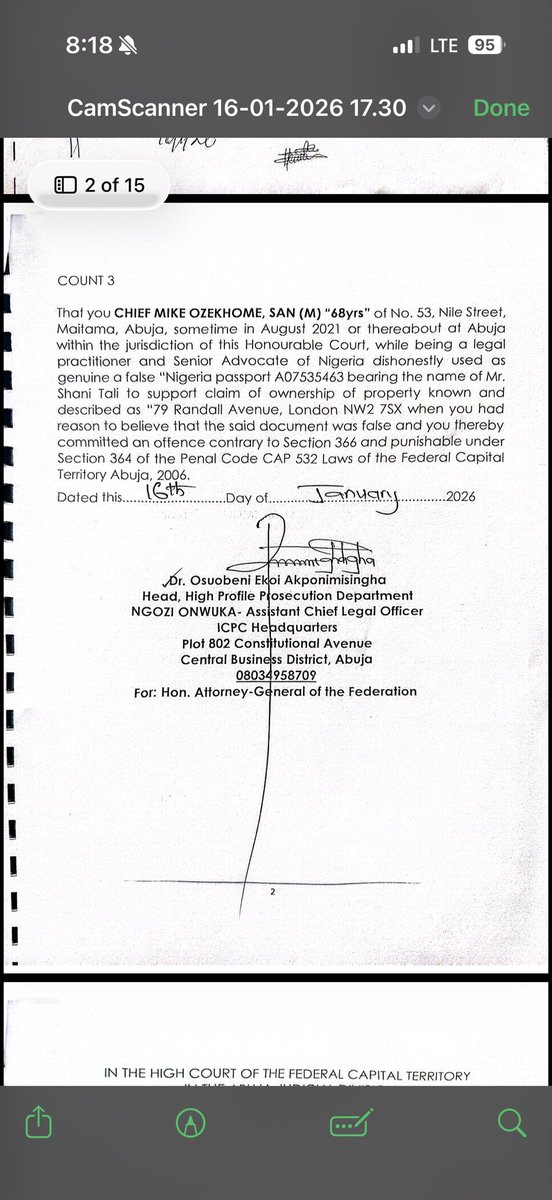 8:18
LTE 95
CamScanner 16-01-2026 17.30
Done
2 of 15
COUNT 3
That you CHIEF MIKE OZEKHOME, SAN (M) “68yrs” of No. 53, Nile Street,
Maitama, Abuja, sometime in August 2021 or thereabout at Abuja
within the jurisdiction of this Honourable Court, while being a legal
practitioner and Senior Advocate of Nigeria dishonestly used as
genuine a false “Nigeria passport A07535463 bearing the name of Mr.
Shani Tali to support claim of ownership of property known and
described as “79 Randall Avenue, London NW2 7SX when you had
reason to believe that the said document was false and you thereby
committed an offence contrary to Section 366 and punishable under
Section 364 of the Penal Code CAP 532 Laws of the Federal Capital
Territory Abuja, 2006.
Dated this......16th......Day of......January......2026
Dr. Osuobeni Ekoi Akponimisingha
Head, High Profile Prosecution Department
NGOZI ONWUKA- Assistant Chief Legal Officer
ICPC Headquarters
Plot 802 Constitutional Avenue
Central Business District, Abuja
08034958709
For: Hon. Attorney-General of the Federation
2
IN THE HIGH COURT OF THE FEDERAL CAPITAL TERRITORY